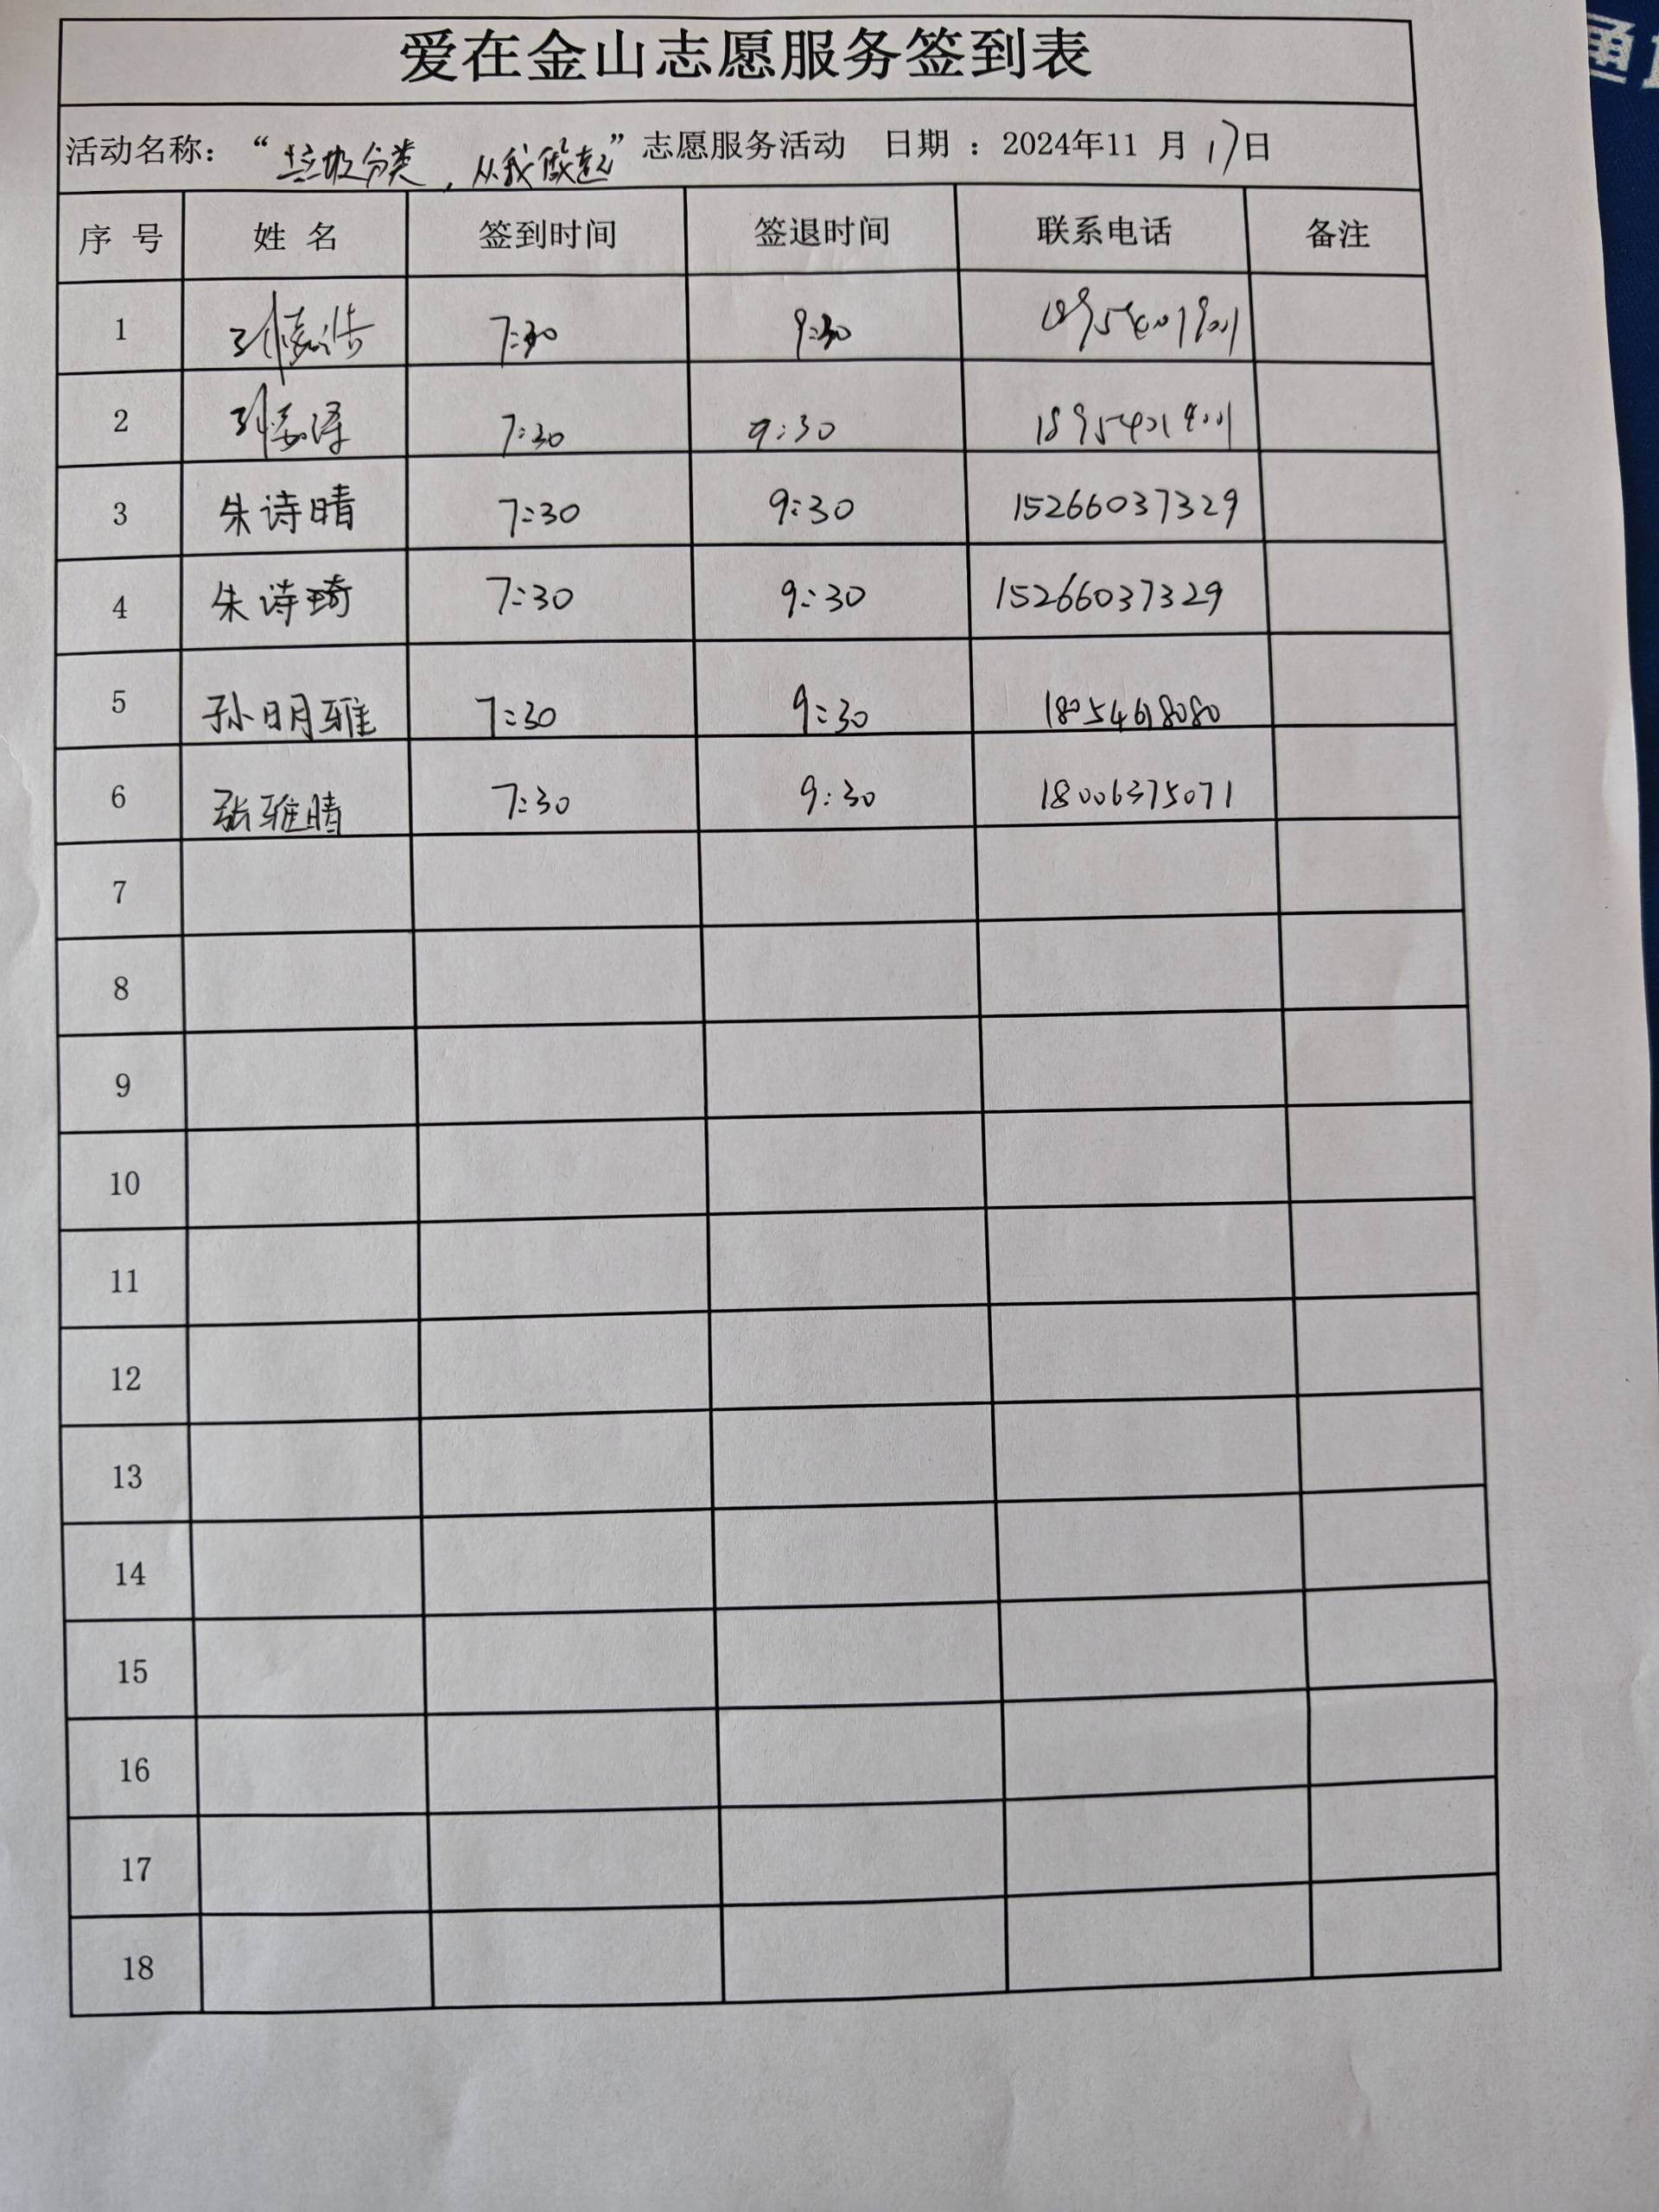 爱在金山志愿服务签到表
活动名称：“垃圾分类，从我做起”志愿服务活动 日期 ：2024年11 月 17日
序 号 姓 名 签到时间 签退时间 联系电话 备注
1 7:30 9:30
2 7:30 9:30
3 朱诗晴 7:30 9:30 15266037329
4 朱诗琦 7:30 9:30 15266037329
5 孙明雅 7:30 9:30 18054618080
6 张雅晴 7:30 9:30 18006375071
7
8
9
10
11
12
13
14
15
16
17
18
通